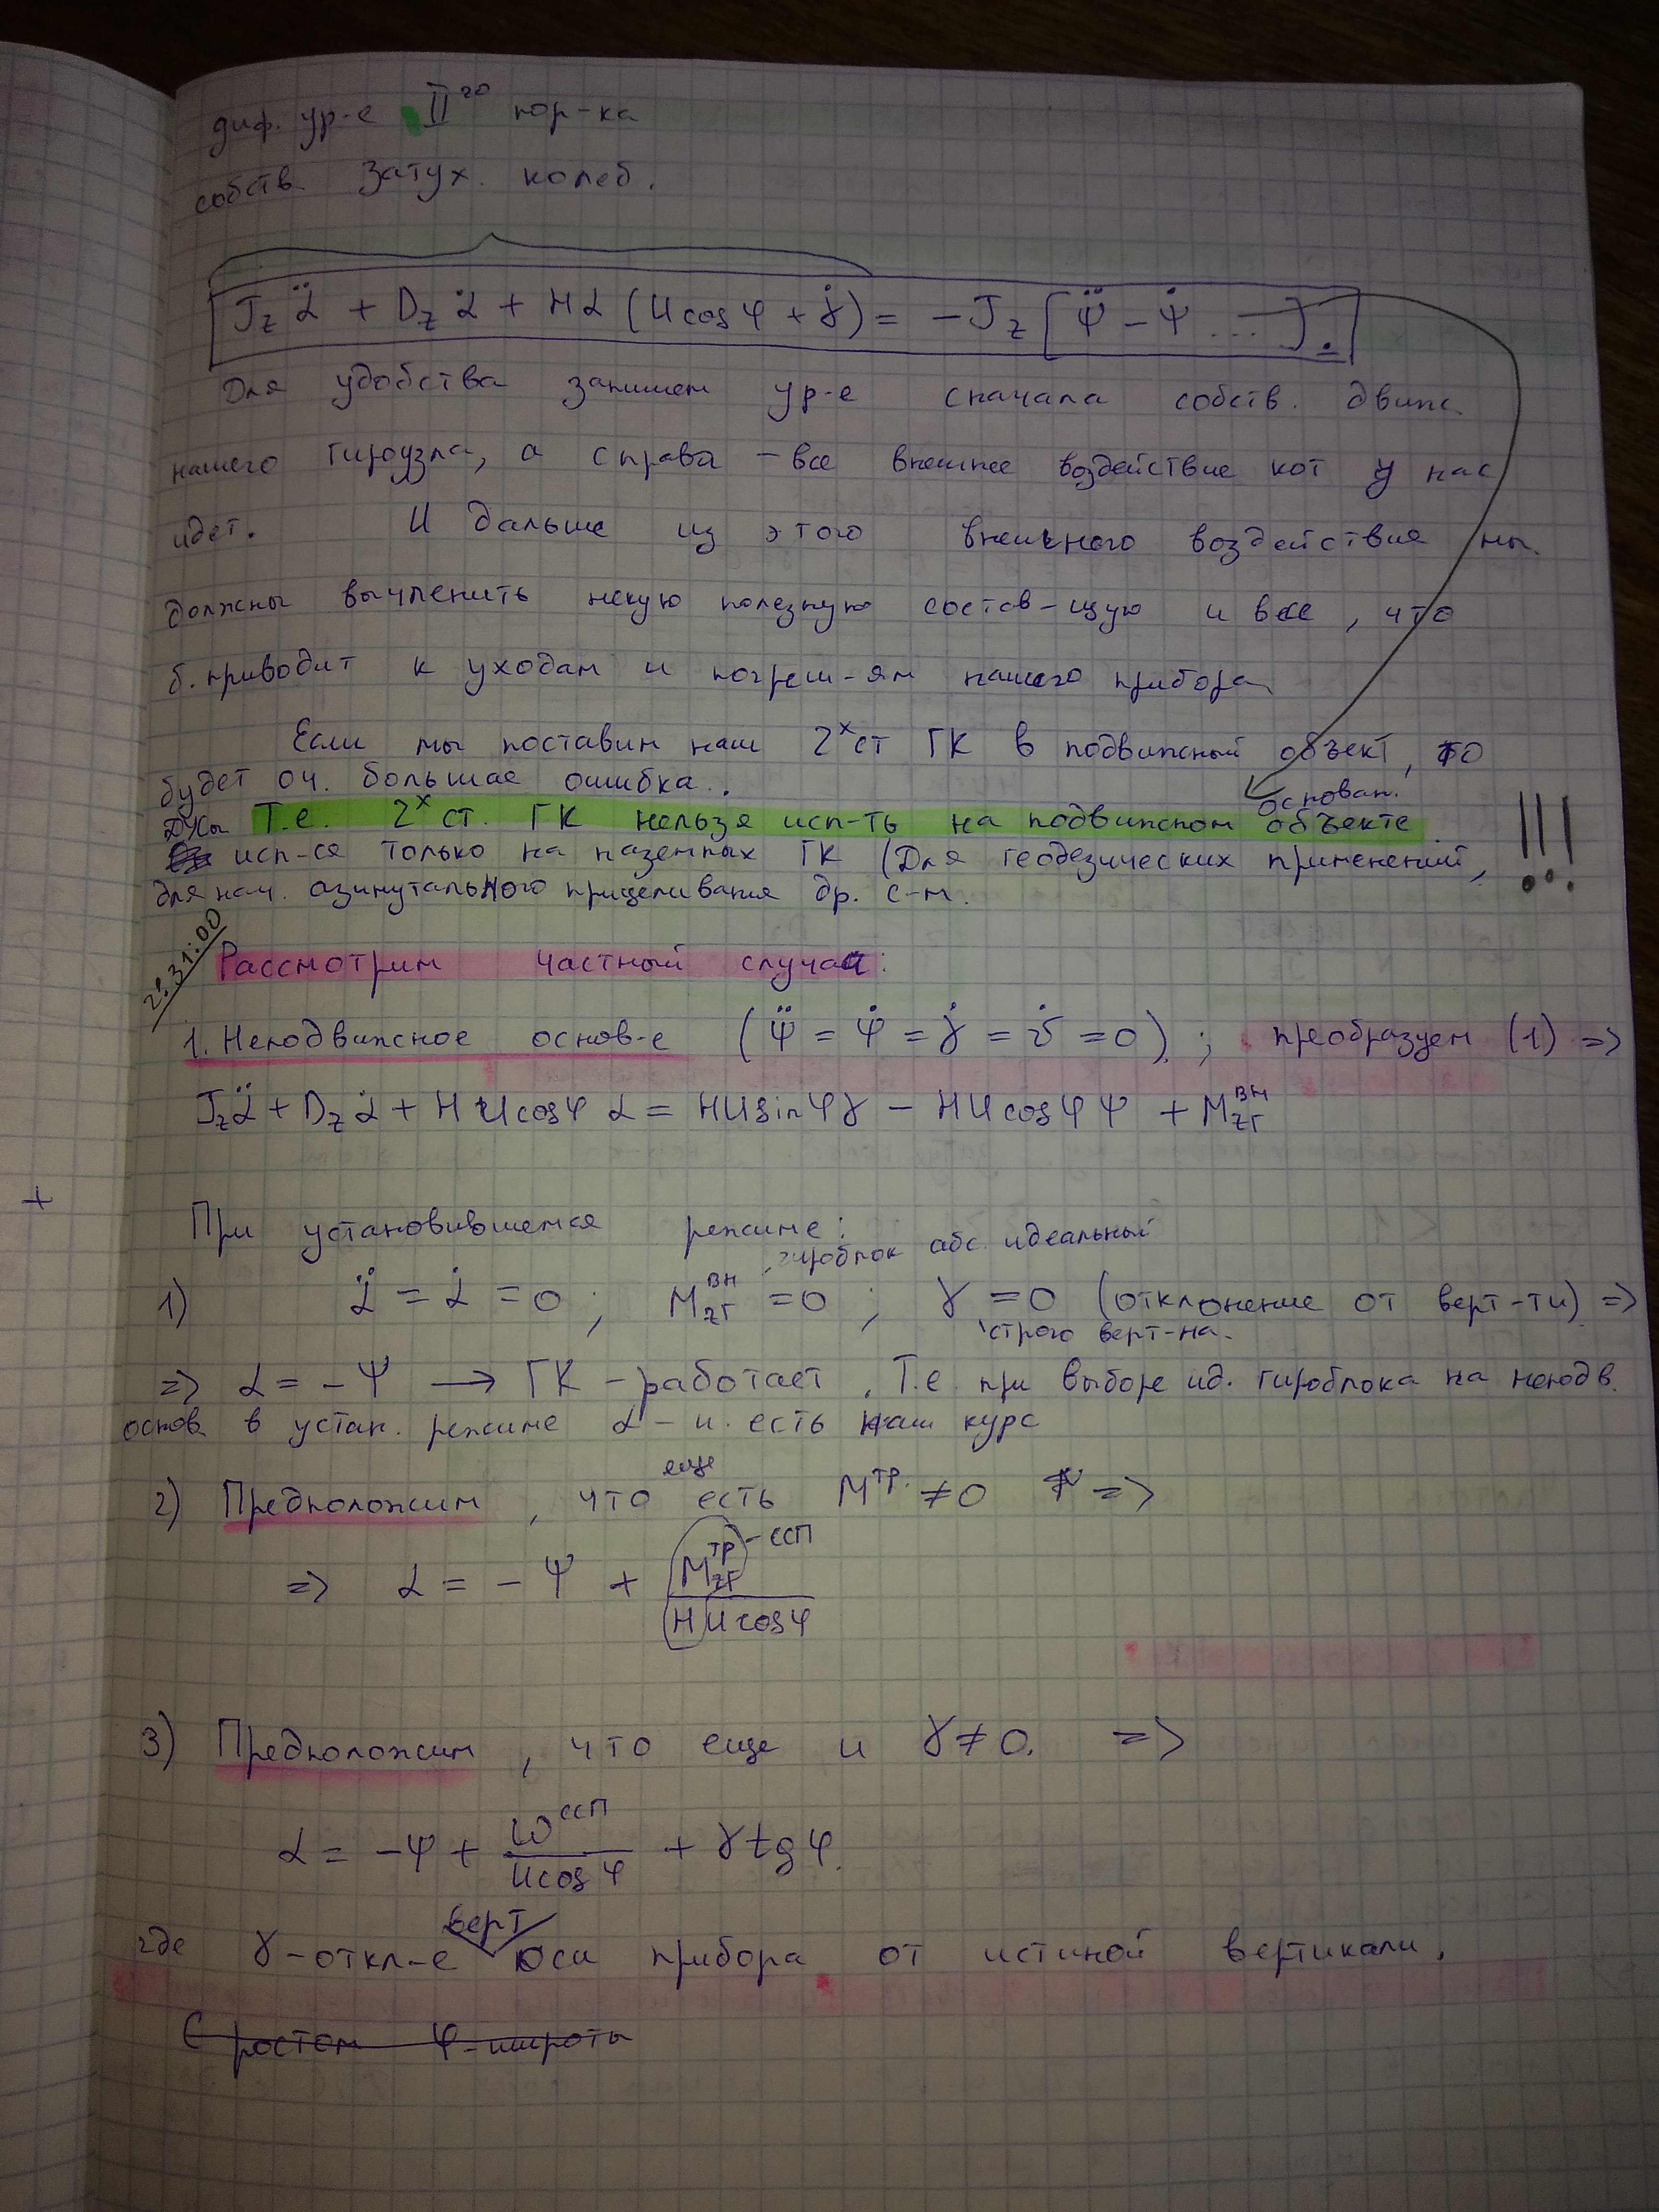 диф. ур-е II го пор-ка
собств. затух. колеб.
J_z α̈ + D_z α̇ + Hα (U cos φ + γ̇) = −J_z [ψ̈ − ψ̇ ...].
Для удобства запишем ур-е сначала собств. движ.
нашего гироузла, а справа – все внешнее воздействие кот у нас
идет. И дальше из этого внешнего воздействия мы
должны вычленить некую полезную состав-щую и все, что
б. приводит к уходам и погреш-ям нашего прибора
Если мы поставим наш 2х ст ГК в подвижный объект, то
будет оч. большая ошибка.
основан.
Т.е. 2х ст. ГК нельзя исп-ть на подвижном объекте !!!
исп-ся только на наземных ГК (Для геодезических применений,
для нач. азимутального прицеливания др. с-м.
2:31:00
Рассмотрим частный случай:
1. Неподвижное основ-е (ψ̈ = ψ̇ = γ̇ = υ̇ = 0); преобразуем (1) =>
J_z α̈ + D_z α̇ + H U cos φ α = HU sin φ γ − HU cos φ ψ + M_zг^вн
+
При установившемся режиме:
гироблок абс. идеальный
1) α̈ = α̇ = 0; M_zг^вн = 0; γ = 0 (отклонение от верт-ти) =>
строго верт-на.
=> α = −ψ → ГК – работает. Т.е при выборе ид. гироблока на неподв.
основ. в устан. режиме α – и есть наш курс
еще
2) Предположим, что есть M^тр. ≠ 0 =>
=> α = −ψ + M_zг^тр / HU cos φ – ССП
3) Предположим, что еще и γ ≠ 0. =>
α = −ψ + ω^ссп / U cos φ + γ tg φ.
верт
где γ – откл-е оси прибора от истиной вертикали.
С ростом φ – широты